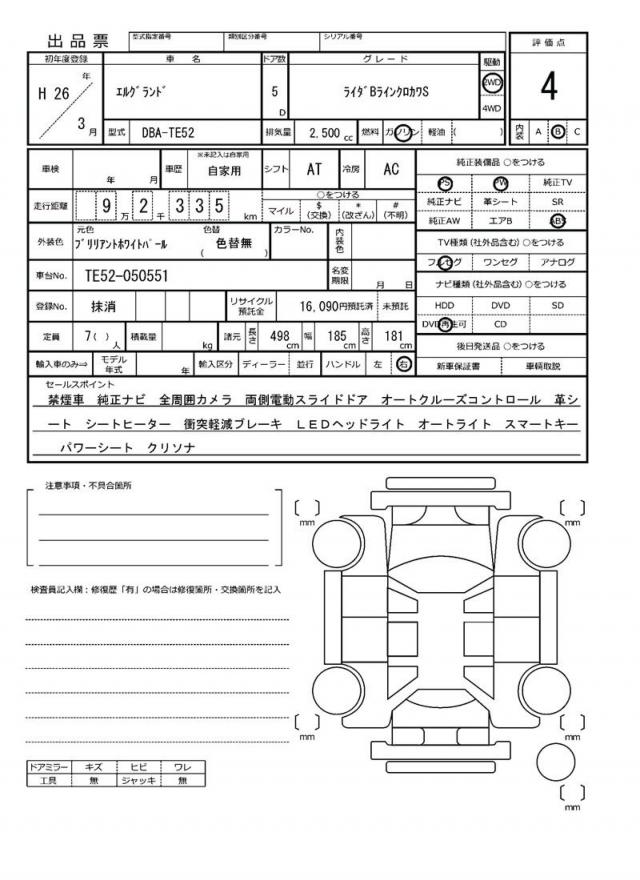 出品票 型式指定番号 類別区分番号 シリアル番号 評価点
初年度登録 車名 ドア数 グレード 駆動
H 26 年 3 月 エルグランド 5 D ライダBラインクロカワS 2WD 4WD 4
型式 DBA-TE52 排気量 2,500 cc 燃料 ガソリン 軽油 ( ) 内装 A B C
車検 年 月 車歴 ※未記入は自家用 自家用 シフト AT 冷房 AC 純正装備品 ○をつける
PS PW 純正TV
走行距離 9 万 2 千 3 3 5 km ○をつける 純正ナビ 革シート SR
マイル $ (交換) * (改ざん) # (不明) 純正AW エアB ABS
外装色 元色 ブリリアントホワイトパール 色替 ( 色替無 ) カラーNo. 内装色 TV種類 (社外品含む) ○をつける
フルセグ ワンセグ アナログ
車台No. TE52-050551 名変期限 月 日 ナビ種類 (社外品含む) ○をつける
登録No. 抹消 リサイクル預託金 16,090円預託済 未預託 HDD DVD SD
DVD再生可 CD
定員 7( ) 人 積載量 kg 諸元 長さ 498 cm 幅 185 cm 高さ 181 cm 後日発送品 ○をつける
輸入車のみ⇒ モデル年式 年 輸入区分 ディーラー 並行 ハンドル 左 右 新車保証書 車輌取説
セールスポイント
禁煙車 純正ナビ 全周囲カメラ 両側電動スライドドア オートクルーズコントロール 革シ
ート シートヒーター 衝突軽減ブレーキ LEDヘッドライト オートライト スマートキー
パワーシート クリソナ
注意事項・不具合箇所
mm mm
検査員記入欄：修復歴「有」の場合は修復箇所・交換箇所を記入
mm mm
ドアミラー キズ ヒビ ワレ
工具 無 ジャッキ 無
mm